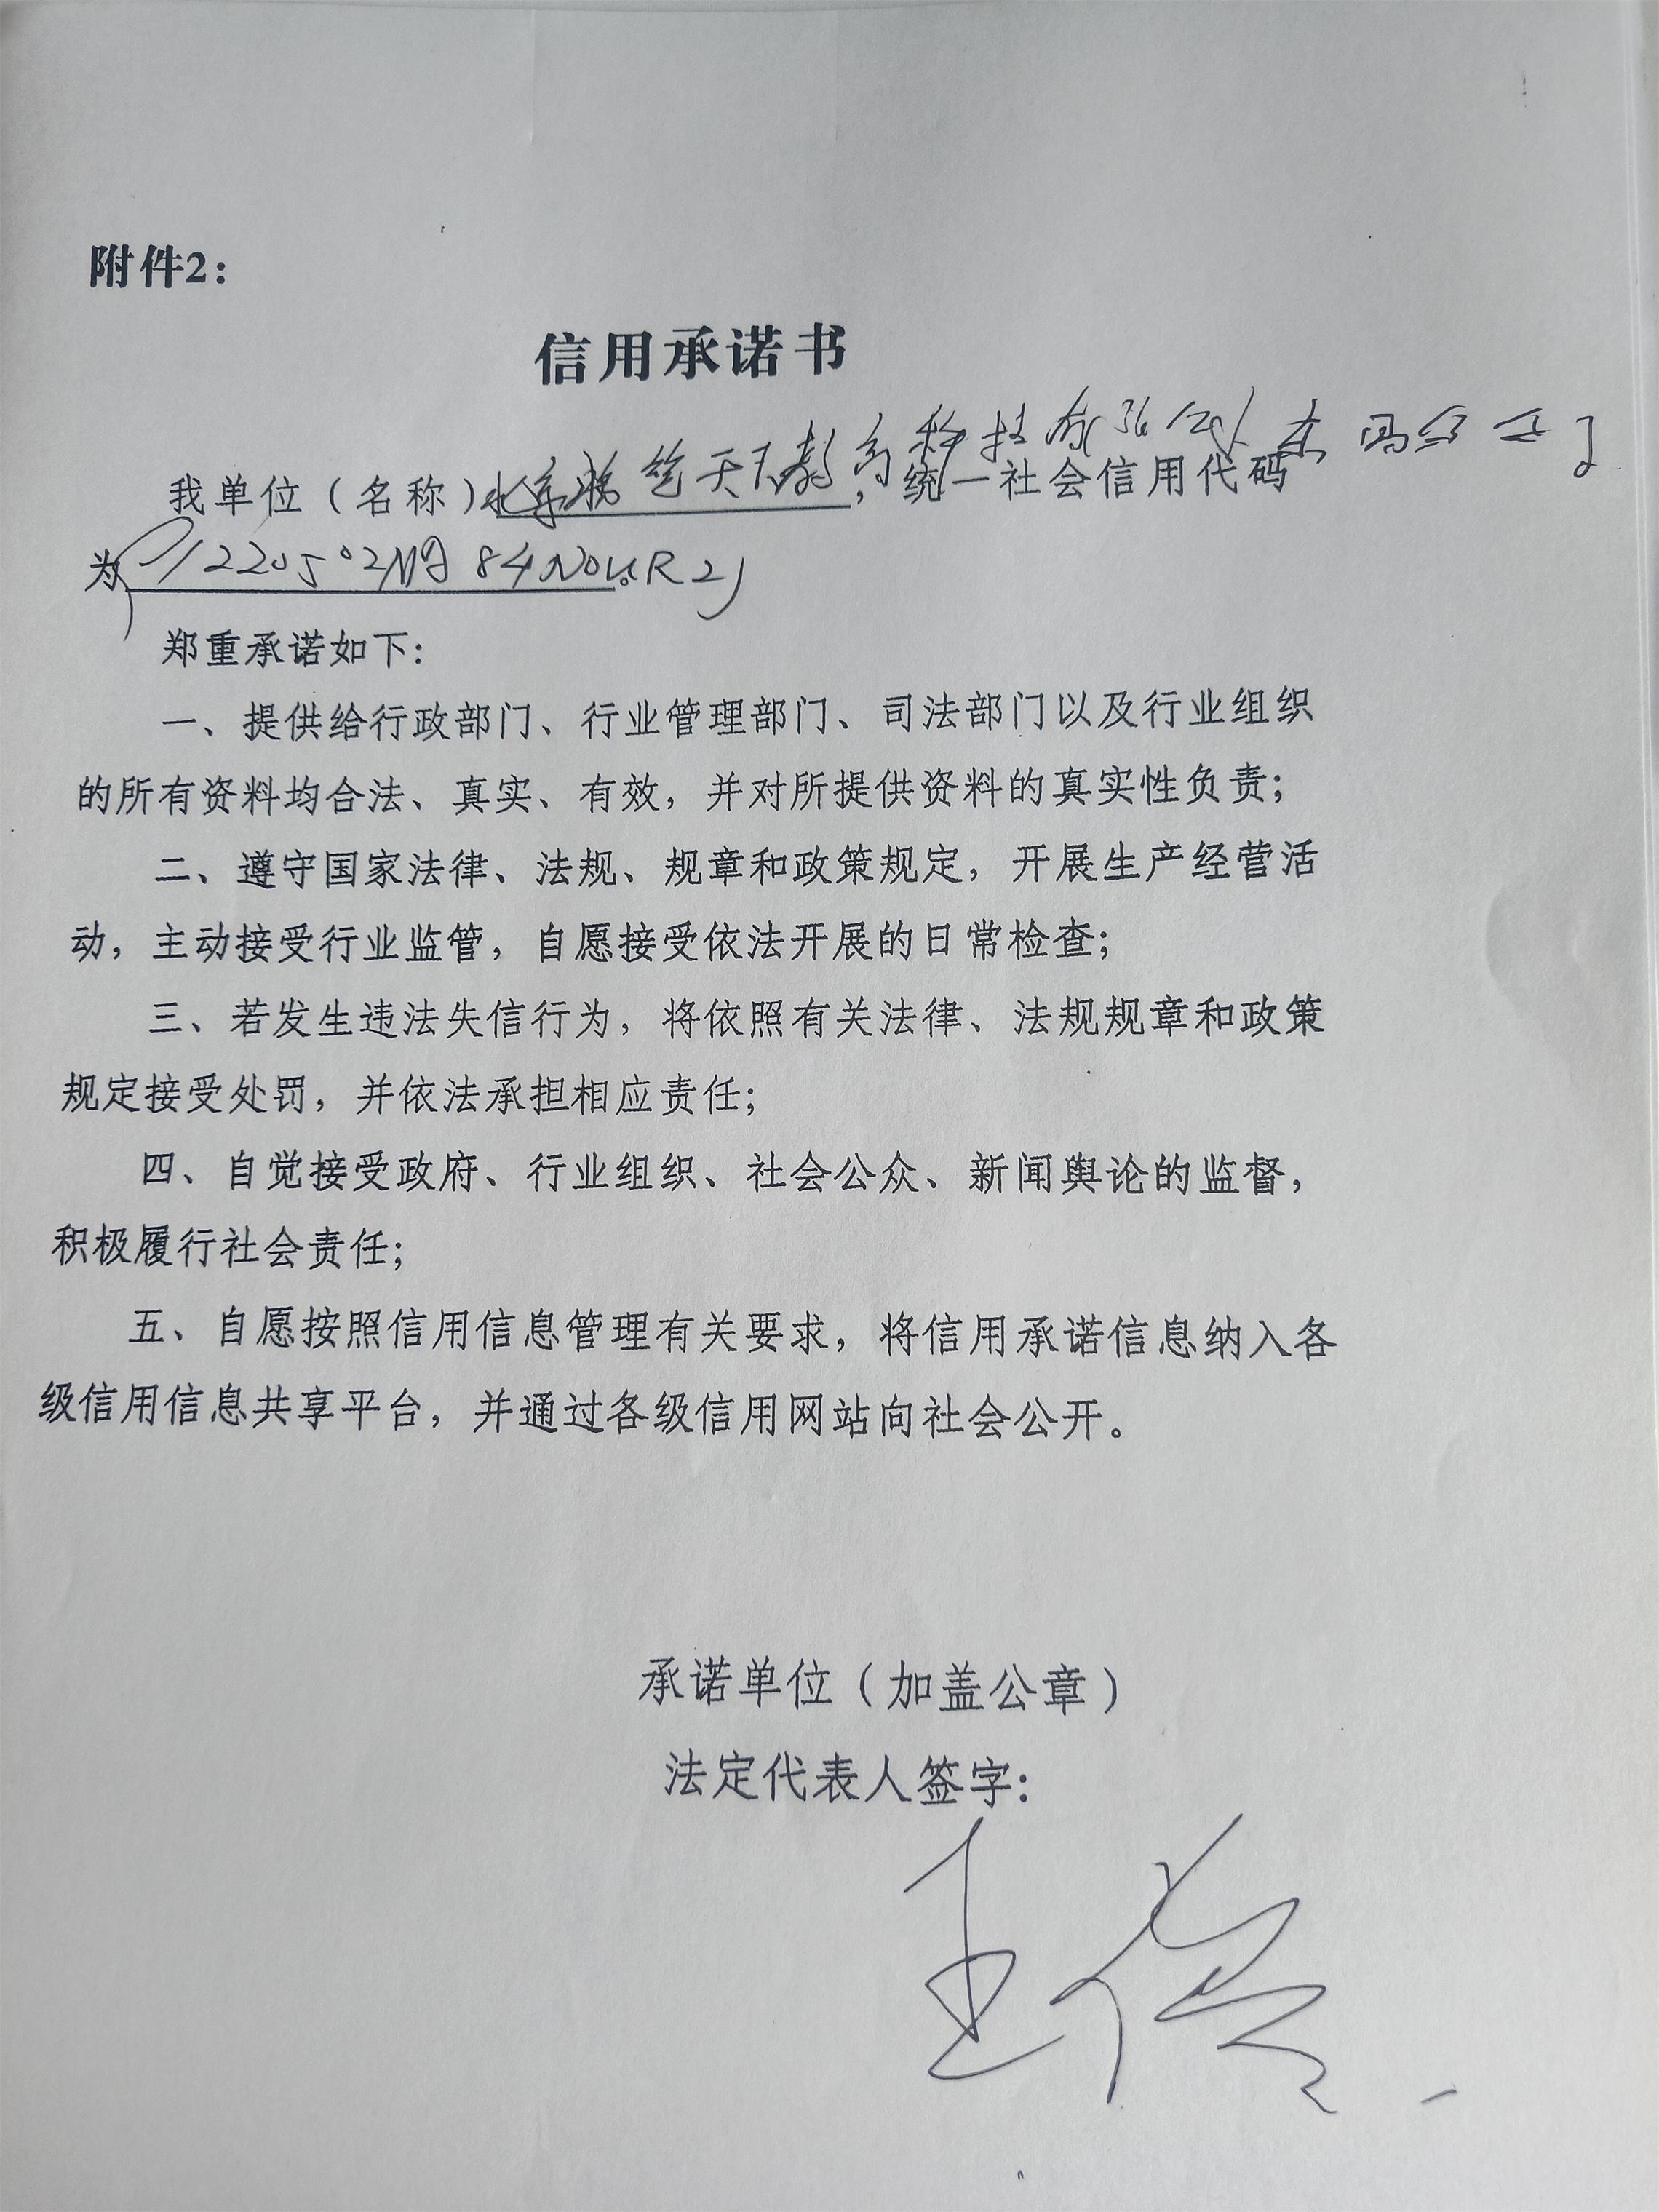 附件2:
信用承诺书
我单位（名称）北京 天下教育科技有限公司 ，统一社会信用代码
为
郑重承诺如下:
一、提供给行政部门、行业管理部门、司法部门以及行业组织
的所有资料均合法、真实、有效，并对所提供资料的真实性负责;
二、遵守国家法律、法规、规章和政策规定，开展生产经营活
动，主动接受行业监管，自愿接受依法开展的日常检查;
三、若发生违法失信行为，将依照有关法律、法规规章和政策
规定接受处罚，并依法承担相应责任;
四、自觉接受政府、行业组织、社会公众、新闻舆论的监督，
积极履行社会责任;
五、自愿按照信用信息管理有关要求，将信用承诺信息纳入各
级信用信息共享平台，并通过各级信用网站向社会公开。
承诺单位（加盖公章）
法定代表人签字: